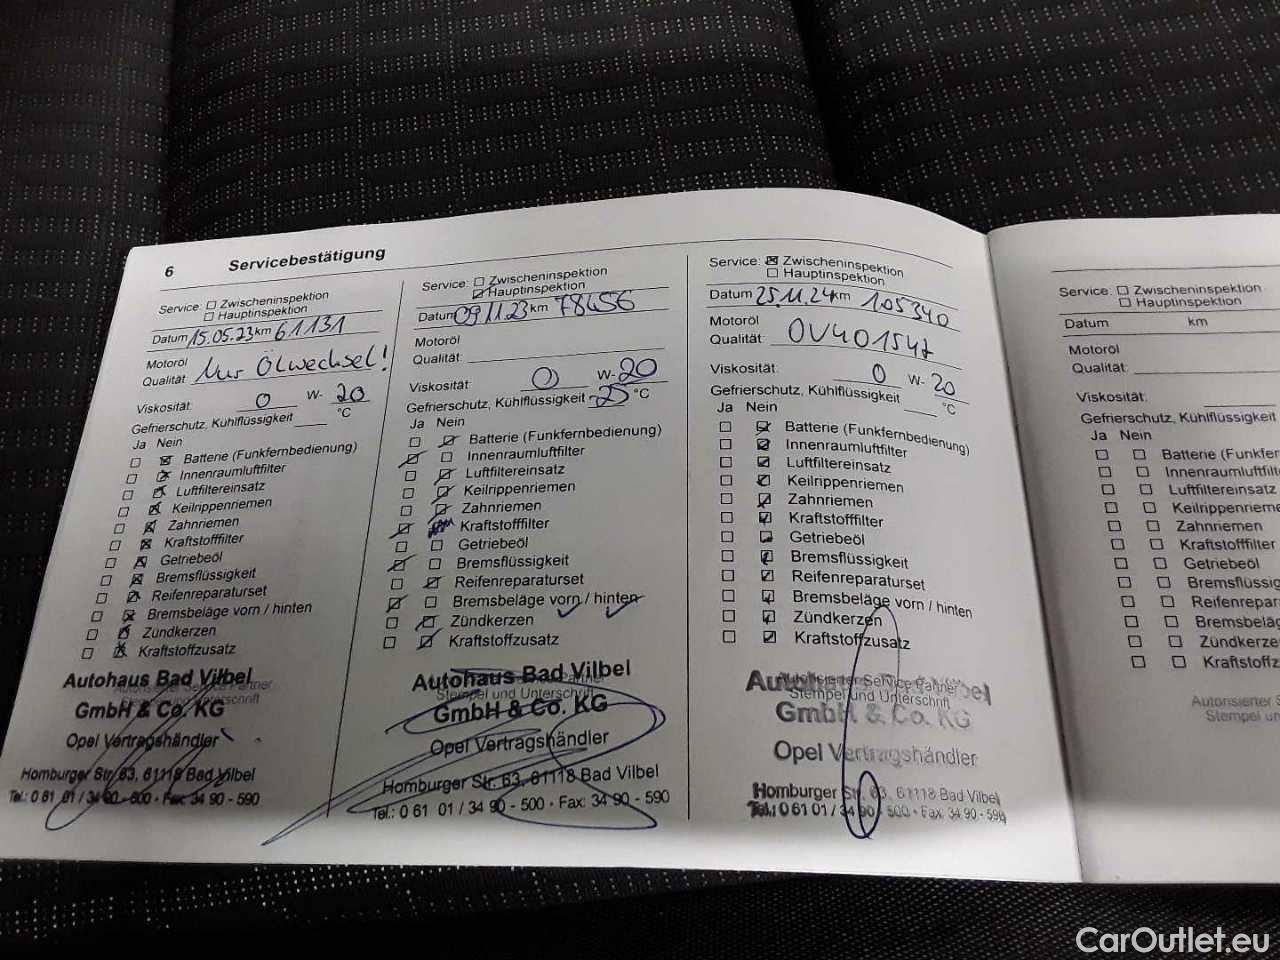 6 Servicebestätigung
Service: Zwischeninspektion
Hauptinspektion
Datum 15.05.23 km 61131
Motoröl
Qualität Nur Ölwechsel!
Viskosität: 0 W- 20
Gefrierschutz, Kühlflüssigkeit °C
Ja Nein
Batterie (Funkfernbedienung)
Innenraumluftfilter
Luftfiltereinsatz
Keilrippenriemen
Zahnriemen
Kraftstofffilter
Getriebeöl
Bremsflüssigkeit
Reifenreparaturset
Bremsbeläge vorn / hinten
Zündkerzen
Kraftstoffzusatz
Autohaus Bad Vilbel
Autorisierter Service Partner
Stempel und Unterschrift
GmbH & Co. KG
Opel Vertragshändler
Homburger Str. 63, 61118 Bad Vilbel
Tel.: 0 61 01 / 34 90 - 500 · Fax: 34 90 - 590
Service: Zwischeninspektion
Hauptinspektion
Datum 09.11.23 km 78456
Motoröl
Qualität:
Viskosität: 0 W- 20
Gefrierschutz, Kühlflüssigkeit -25 °C
Ja Nein
Batterie (Funkfernbedienung)
Innenraumluftfilter
Luftfiltereinsatz
Keilrippenriemen
Zahnriemen
Kraftstofffilter
Getriebeöl
Bremsflüssigkeit
Reifenreparaturset
Bremsbeläge vorn / hinten
Zündkerzen
Kraftstoffzusatz
Autohaus Bad Vilbel
Stempel und Unterschrift
GmbH & Co. KG
Opel Vertragshändler
Homburger Str. 63, 61118 Bad Vilbel
Tel.: 0 61 01 / 34 90 - 500 · Fax: 34 90 - 590
Service: Zwischeninspektion
Hauptinspektion
Datum 25.11.24 km 105340
Motoröl
Qualität: OV401547
Viskosität: 0 W- 20
Gefrierschutz, Kühlflüssigkeit °C
Ja Nein
Batterie (Funkfernbedienung)
Innenraumluftfilter
Luftfiltereinsatz
Keilrippenriemen
Zahnriemen
Kraftstofffilter
Getriebeöl
Bremsflüssigkeit
Reifenreparaturset
Bremsbeläge vorn / hinten
Zündkerzen
Kraftstoffzusatz
Autorisierter Service Partner
Stempel und Unterschrift
GmbH & Co. KG
Opel Vertragshändler
Homburger Str. 63, 61118 Bad Vilbel
Tel.: 0 61 01 / 34 90 - 500 · Fax: 34 90 - 590
Service: Zwischeninspektion
Hauptinspektion
Datum km
Motoröl
Qualität:
Viskosität:
Gefrierschutz, Kühlflüssigkeit
Ja Nein
Batterie (Funkfer
Innenraumluftfilte
Luftfiltereinsatz
Keilrippenrieme
Zahnriemen
Kraftstofffilter
Getriebeöl
Bremsflüssig
Reifenrepar
Bremsbeläg
Zündkerze
Kraftstoffz
Autorisierter S
Stempel un
CarOutlet.eu